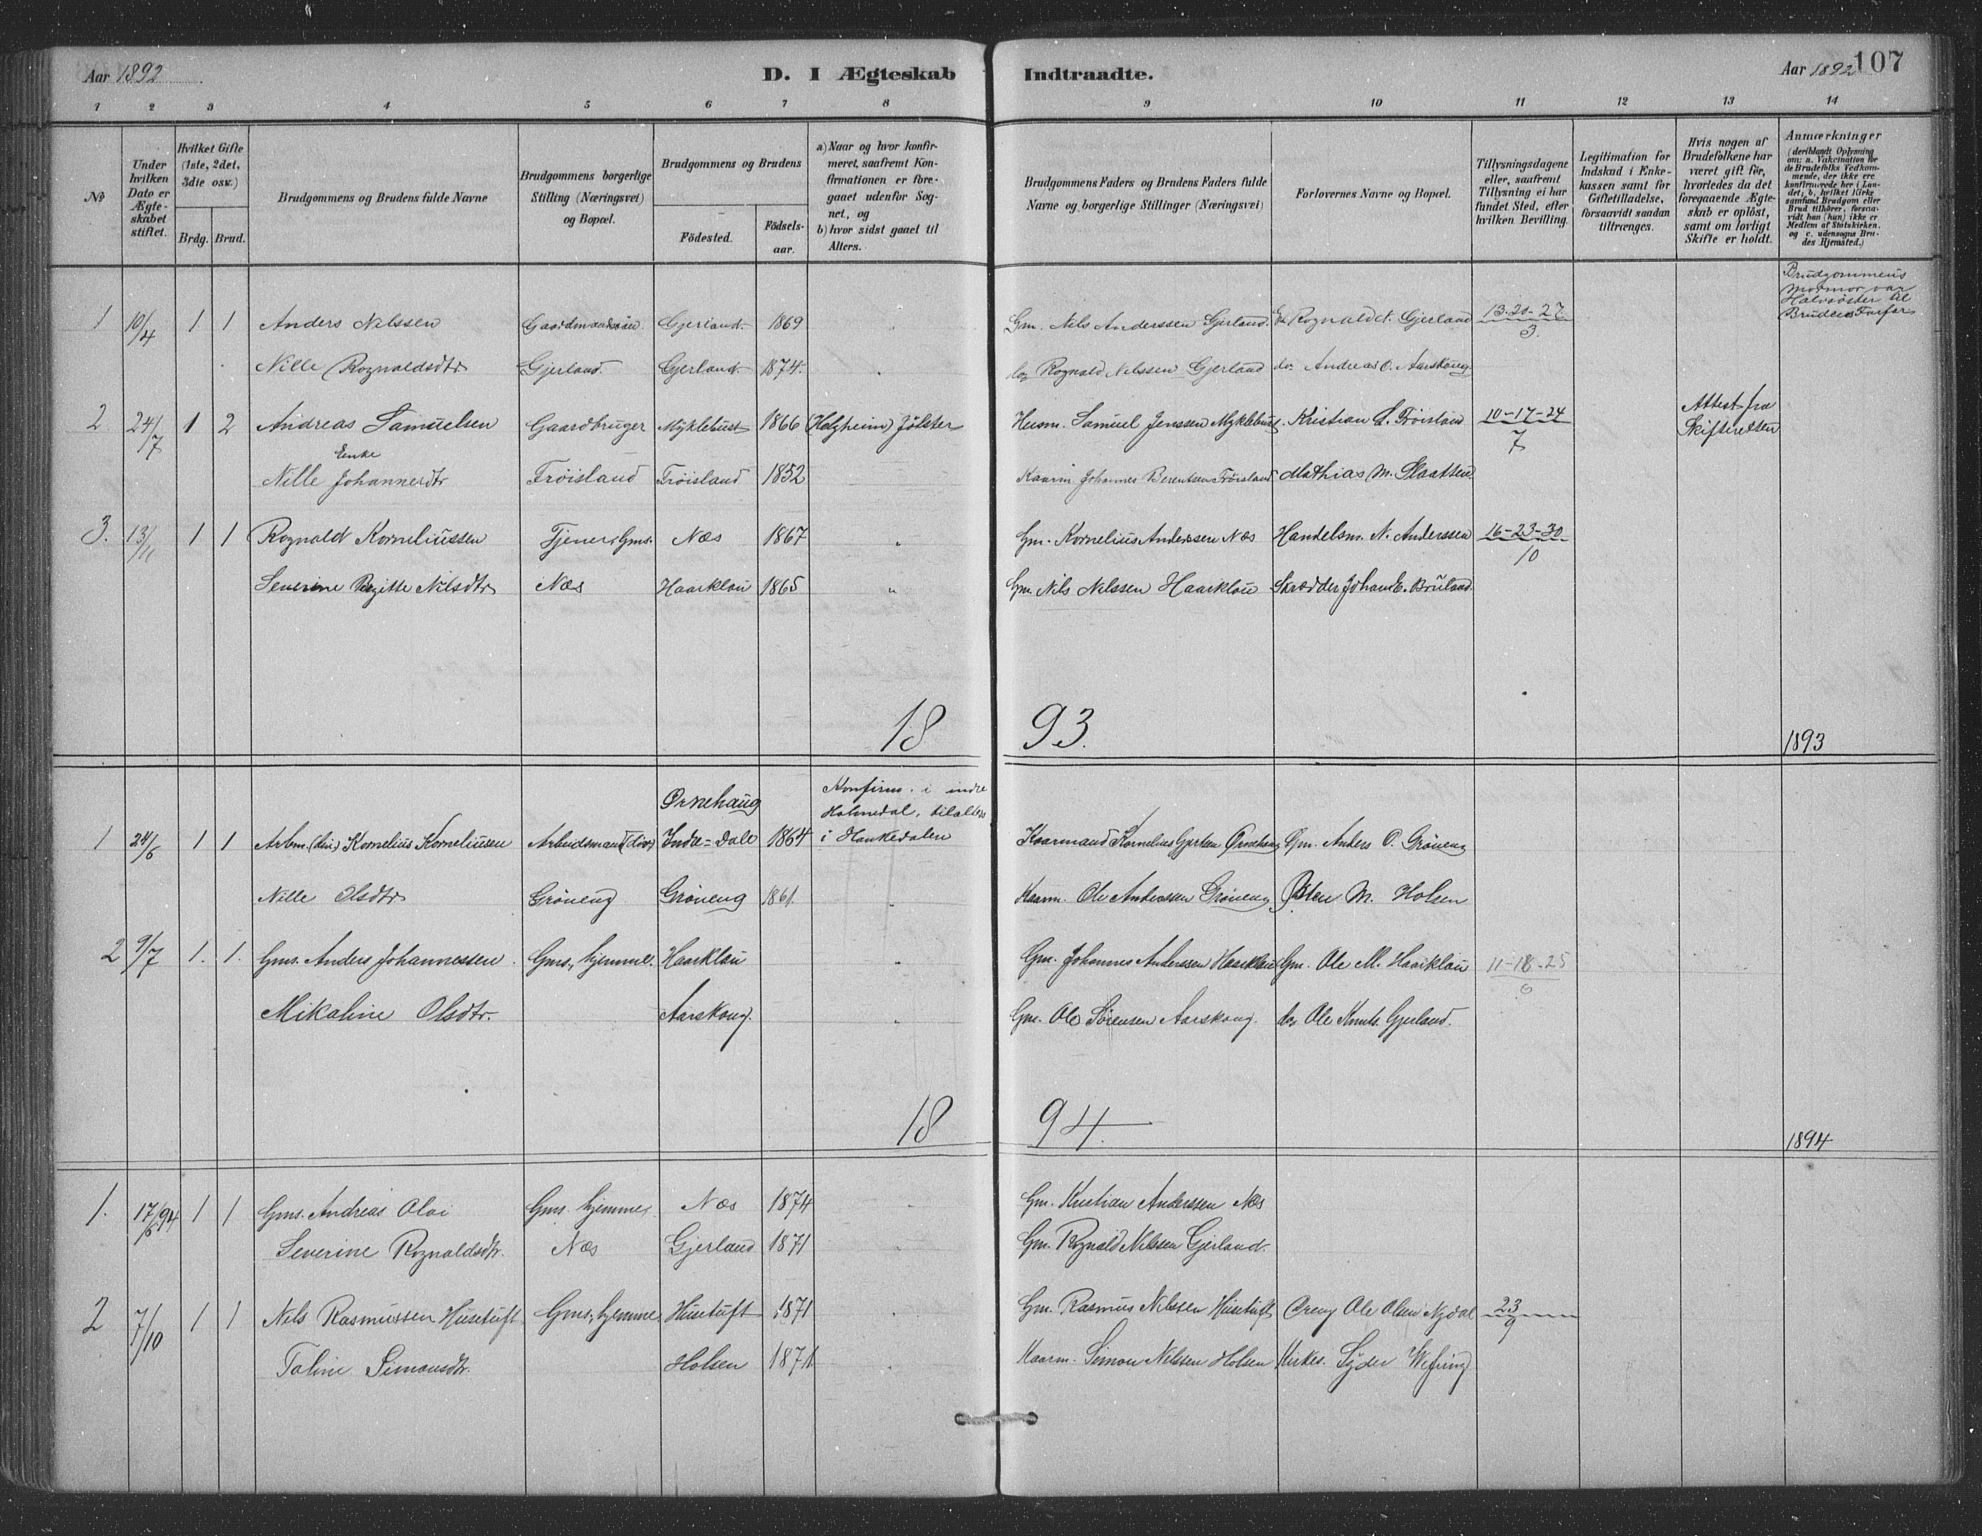 Aar 1892
D. I Ægteskab
Indtraadte.
Aar 1892
107
1 2 3 4 5 6 7 8 9 10 11 12 13 14
№
Under hvilken Dato er Ægteskabet stiftet.
Hvilket Gifte (1ste, 2det, 3die osv.)
Brdg. Brud.
Brudgommens og Brudens fulde Navne
Brudgommens borgerlige Stilling (Næringsvei) og Bopæl.
Brudgommens og Brudens
Fødested.
Fødselsaar.
a) Naar og hvor konfirmeret, saafremt Konfirmationen er foregaaet udenfor Sognet, og
b) hvor sidst gaaet til Alters.
Brudgommens Faders og Brudens Faders fulde Navne og borgerlige Stillinger (Næringsvei)
Forlovernes Navne og Bopæl.
Tillysningsdagene eller, saafremt Tillysning ei har fundet Sted, efter hvilken Bevilling.
Legitimation for Indskud i Enkekassen samt for Giftetilladelse, forsaavidt saadan tiltrænges.
Hvis nogen af Brudefolkene har været gift før, hvorledes da det foregaaende Ægteskab er opløst, samt om lovligt Skifte er holdt.
Anmærkninger (deriblandt Oplysning om: a. Vakcination for de Brudefolks Vedkommende, der ikke ere konfirmerede her i Landet; b. hvilket Kirkesamfund Brudgom eller Brud tilhører, forsaavidt han (hun) ikke er Medlem af Statskirken, og c. udensogns Brudes Hjemsted.)
1 10/4 1 1 Anders Nilssen Gaardmandssøn Gjerland 1869 " Gm. Nils Anderssen Gjerland Rognald Gjerland 13-20-27/3 Brudgommens Mormor var Halvsøster til Brudens Farfar
Nille Rognaldsdtr Gjerland Gjerland 1874 " Rognald Nilssen Gjerland do. Andreas O. Aarskoug
2 24/7 1 2 Andreas Samuelsen Gaardbruger Myklebust 1866 (Halgheim) Jølster Husm. Samuel Jenssen Myklebust Kristian S. Trøisland 10-17-24/7 Attest fra Skifteretten
Enke
Nille Johannesdtr Trøisland Trøisland 1852 Kaarm. Johannes Berentsen Trøisland Mathias M. Slaatten
3. 13/11 1 1 Rognald Korneliussen Tjener, Gms. Næs 1867 " Gm. Kornelius Anderssen Næs Handelsm. N. Anderssen 16-23-30/10
Severine Birgitte Nilsdtr Næs Haarklau 1865 " Gm. Nils Nilssen Haarklau Skrædder Johan E. Bruland
18 93. 1893
1 24/6 1 1 Arbm. (div) Kornelius Korneliusen Arbeidsmand (div) Ørnehaug Indre-Dale 1864 Konfirm. i indre Holmedal, tilalters i Haukedalen Kaarmand Kornelius Ørnehaug Gm. Anders O. Grøneng
Nille Olsdtr Grøneng Grøneng 1861 " Kaarm. Ole Anderssen Grøneng Østen M. Holsen
2 9/7 1. 1. Gms. Anders Johannessen Gms., hjemme. Haarklau " Gm. Johannes Anderssen Haarklau Gm. Ole M. Haarklau 11-18-25/6
Mikaline Olsdtr. Aarskoug. " Gm. Ole Sørensen Aarskoug. do. Ole Knuts. Gjerland.
18 94. 1894
1. 17/6 94 1 1 Gms. Andreas Olai Gms. hjemme Næs 1874 " Gm. Kristian Anderssen Næs
Severine Rognaldsdtr. Næs Gjerland 1871 " Gm. Rognald Nilssen Gjerland.
2 7/10 1 1 Nils Rasmussen Husetuft Gms., hjemme Husetuft 1871 Gm. Rasmus Nilssen Husetuft Ole Olsen 23/9
Taline Simonsdtr. Holsen 1871 " Kaarm. Simon Nilssen Holsen Kirkes. Syder Wefring